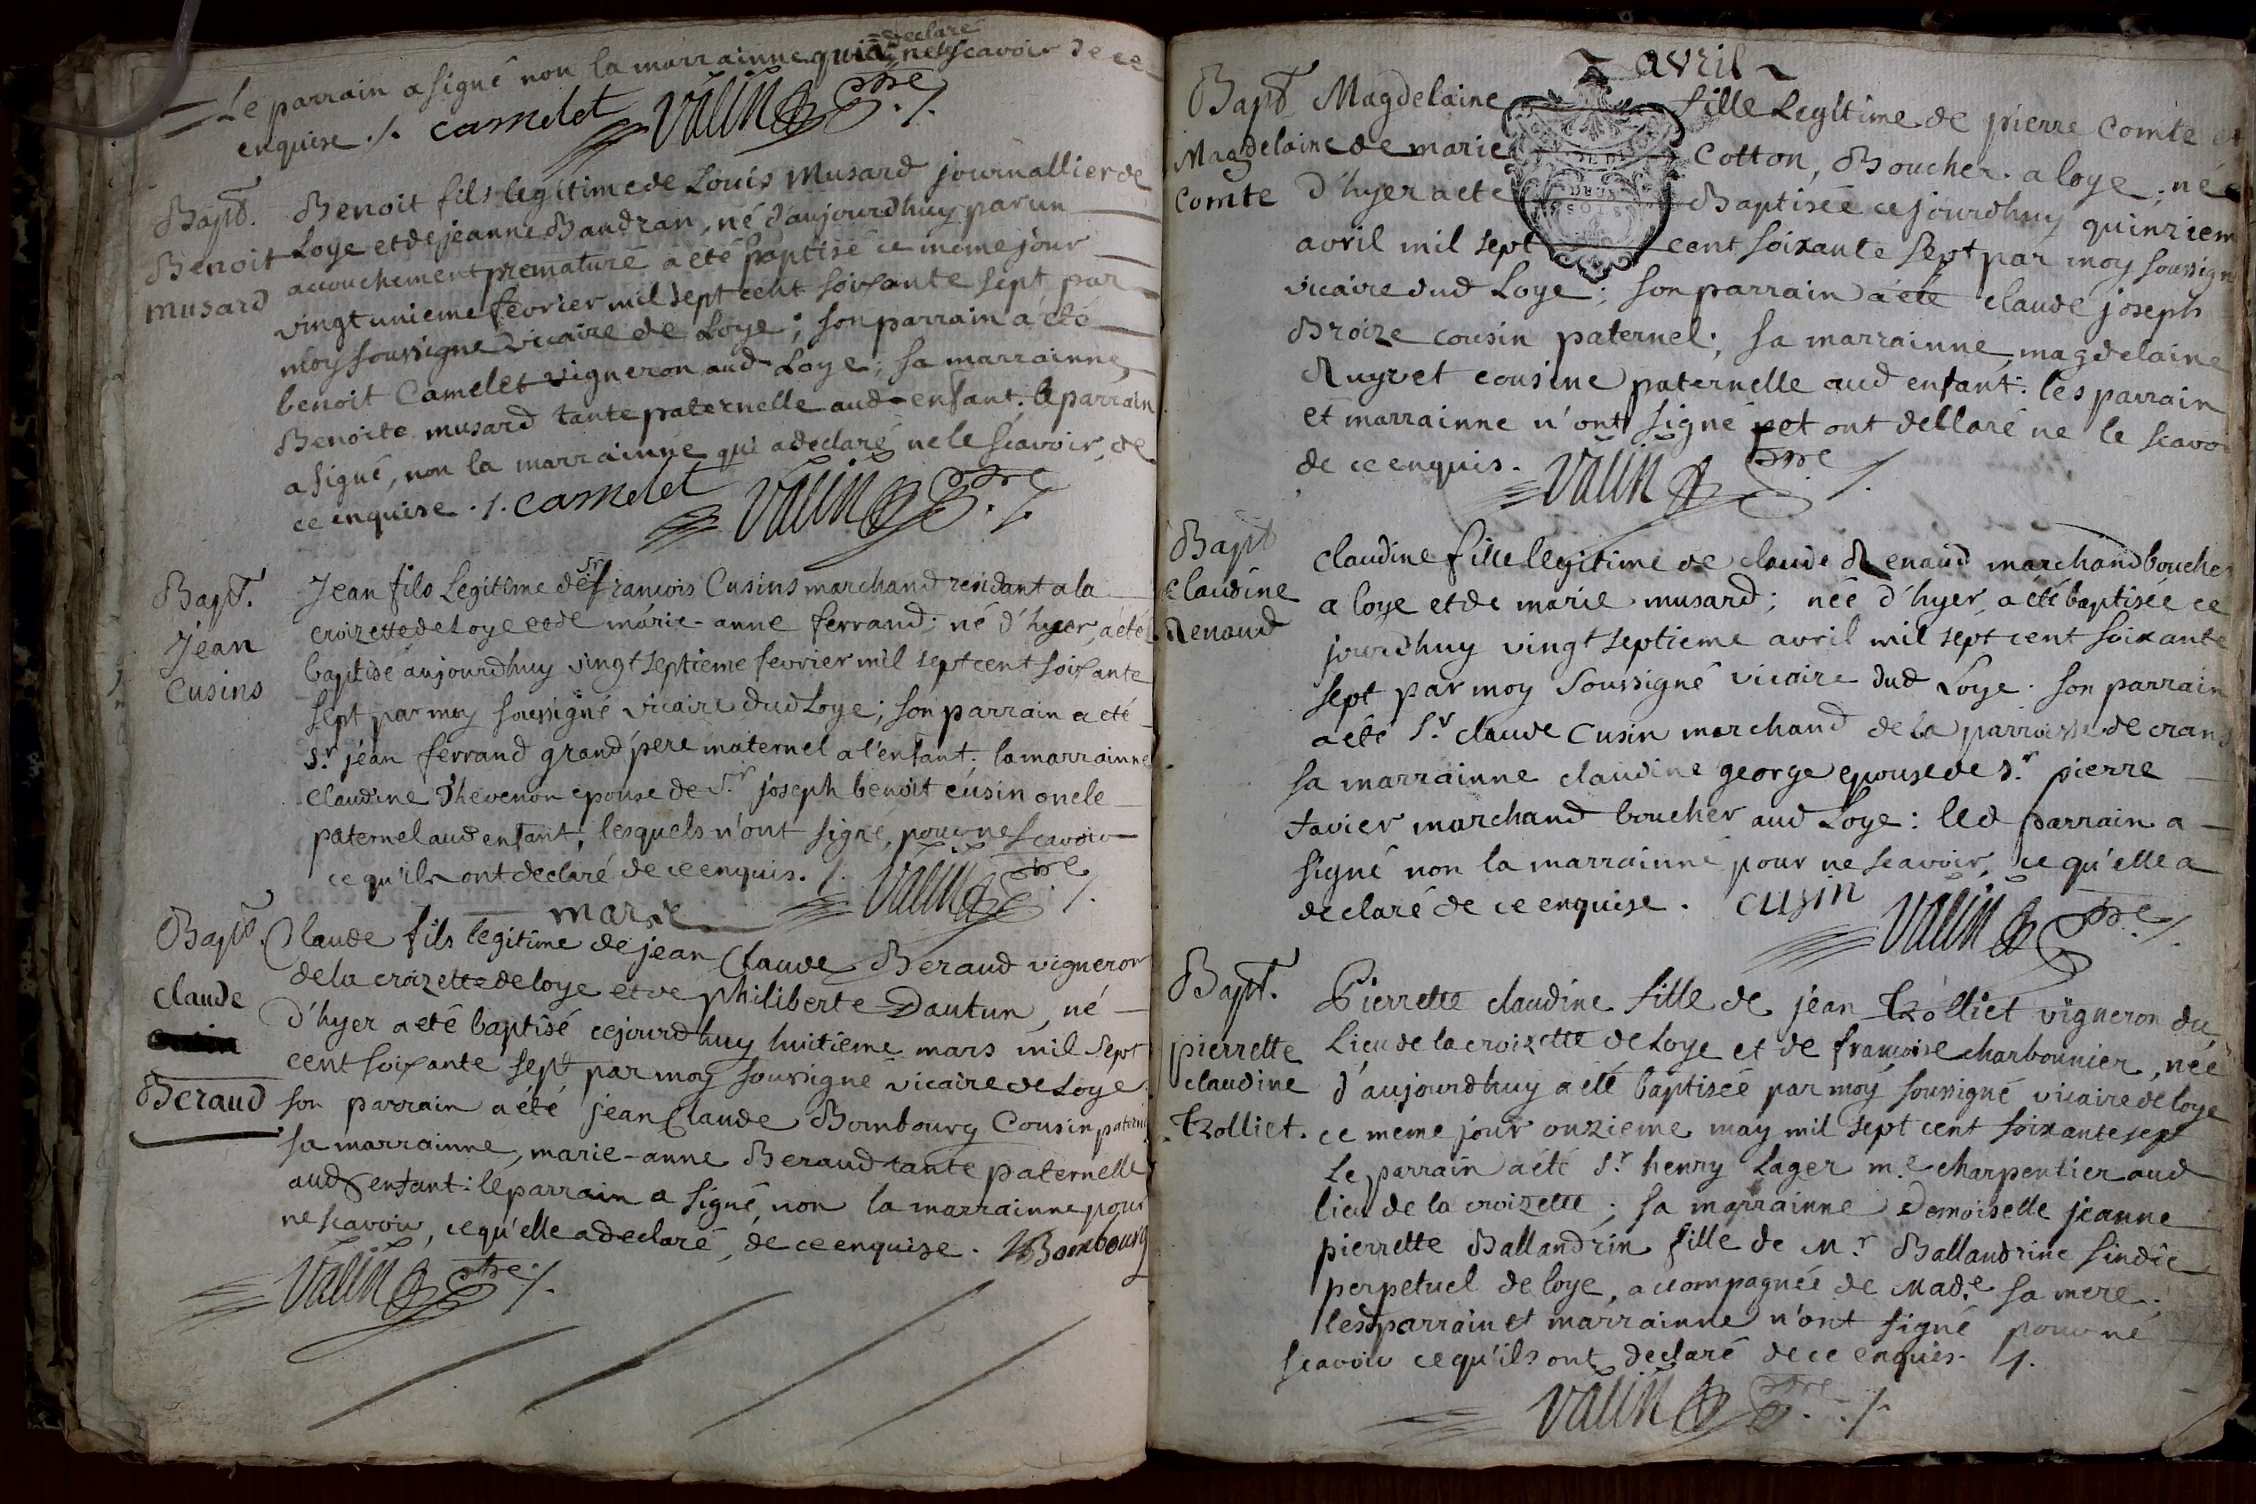 Le parrain a signé non la marrainne qui a declaré ne le scavoir de ce
enquise ./. camelet Valin ptre ./.
Bapt. Benoit fils legitime de Louis Musard journallier de
Benoit Loye et de jeanne Baudran, né d'aujourdhuy par un
musard accouchement premature a eté baptisé ce meme jour
vingt unieme fevrier mil sept cent soixante sept par
moy soussigné vicaire de Loye; son parrain a été
benoit Camelet vigneron aud Loye; sa marrainne
Benoite musard tante paternelle aud enfant. le parrain
a signé, non la marrainne qui a declaré ne le scavoir, de
ce enquise ./. camelet Valin ptre ./.
Bapt. Jean fils Legitime de sr francois Cusins marchand residant a la
Jean croizette de Loye et de marie-anne ferrand; né d'hyer, a été
Cusins baptisé aujourdhuy vingt septieme fevrier mil sept cent soixante
sept par moy soussigné vicaire dud Loye; son parrain a eté
sr jean ferrand grand pere maternel a l'enfant; la marrainne
claudine Thevenon epouse de sr joseph benoit cusin oncle
paternel aud enfant, lesquels n'ont signé, pour ne scavoir
ce qu'ils ont declaré de ce enquis. /. Valin ptre /.
mars
Bapt. Claude fils legitime de jean Claude Beraud vigneron
de la croizette de loye et de philiberte Dautun, né
claude d'hyer a eté baptisé cejourdhuy huitieme mars mil sept
cent soixante sept par moy soussigné vicaire de Loye
Beraud son parrain a été jean Claude Bombourg Cousin paternel
sa marrainne, marie-anne Beraud tante paternelle
aud enfant: le parrain a signé, non la marrainne pour
ne scavoir, ce qu'elle a declaré, de ce enquise. Bombourg
Valin ptre ./.
avril
Bapt Magdelaine fille Legitime de pierre Comte et
Magdelaine de marie Cotton, Boucher a loye; née
Comte d'hyer a eté Baptisée cejourdhuy quinziem
avril mil sept cent soixante sept par moy soussign
vicaire dud Loye; son parrain a été claude joseph
Broize cousin paternel; sa marrainne magdelaine
Ruyvet cousine paternelle aud enfant. les parrain
et marrainne n'ont signé et ont dellaré ne le scavo
de ce enquis. Valin ptre ./.
Bapt claudine fille legitime de claude Renaud marchand boucher
claudine a loye et de marie musard; née d'hyer, a été baptisée ce
Renaud jourdhuy vingt septieme avril mil sept cent soixante
sept par moy soussigné vicaire dud Loye. son parrain
a eté sr claude Cusin marchand de la parroisse de crans
sa marrainne claudine george epouse de sr pierre
tavier marchand boucher aud Loye: led parrain a
signé non la marrainne pour ne scavoir, ce qu'elle a
declaré de ce enquise. cusin Valin ptre ./.
Bapt. Pierrette claudine fille de jean trolliet vigneron du
pierrette Lieu de la croizette de Loye et de francoise charbonnier, née
claudine d'aujourdhuy a eté baptisée par moy soussigné vicaire de loye
trolliet. ce meme jour onzieme may mil sept cent soixante sept
Le parrain a été sr henry Lager me charpentier aud
lieu de la croizette; sa marrainne Demoiselle jeanne
pierrette Ballandrin fille de Mr Ballandrin sindic
perpetuel de loye, accompagnée de Made sa mere;
lesd parrain et marrainne n'ont signé pour ne
scavoir ce qu'ils ont declaré de ce enquis. /.
Valin ptre ./.